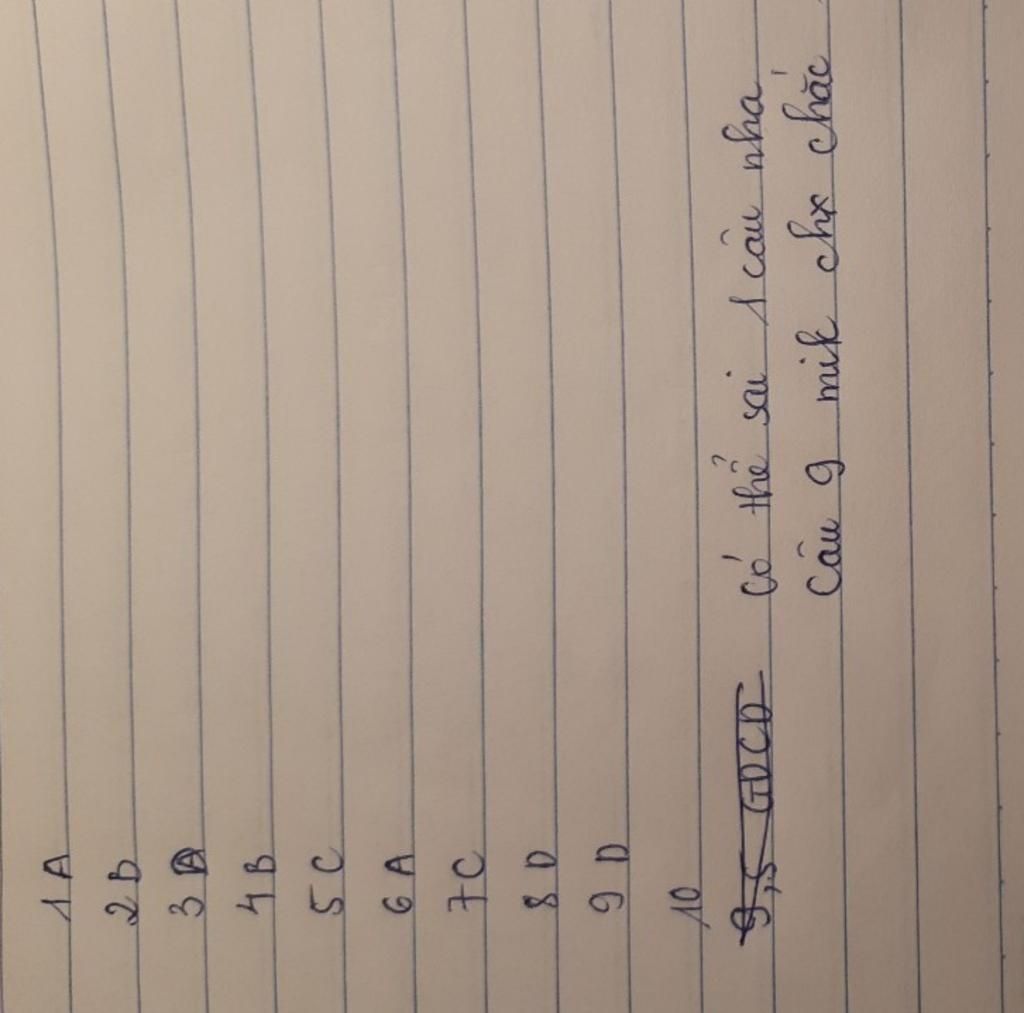 1 A
2 B
3 A
4 B
5 C
6 A
7 C
8 D
9 D
10
9,5 GDCD có thể sai 1 câu nha
Câu 9 mik chx chắc